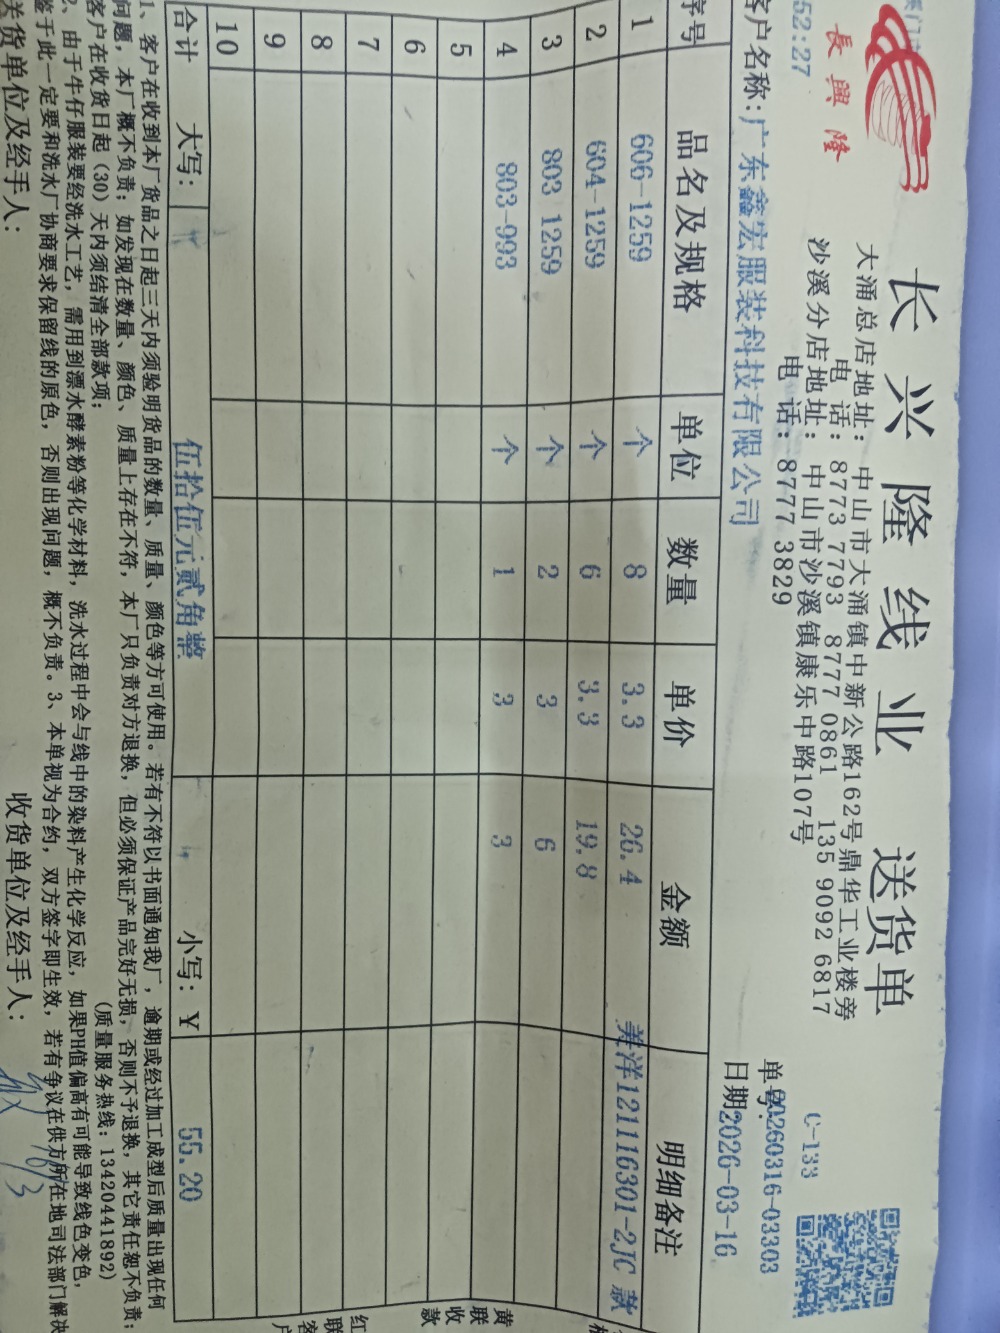 長興隆
长兴隆线业 送货单
大涌总店地址：中山市大涌镇中新公路162号鼎华工业楼旁
电话：8773 7793 8777 0861 135 9092 6817
沙溪分店地址：中山市沙溪镇康乐中路107号
电话：8777 3829
C-133
52:27
单号：20260316-03303
客户名称：广东鑫宏服装科技有限公司
日期2026-03-16
序号 品名及规格 单位 数量 单价 金额 明细备注
1 606-1259 个 8 3.3 26.4 美洋121116301-2JC 款
2 604-1259 个 6 3.3 19.8
3 803 1259 个 2 3 6
4 803-993 个 1 3 3
5
6
7
8
9
10
合计 大写： 伍拾伍元贰角整 小写：￥ 55.20
1、客户在收到本厂货品之日起三天内须验明货品的数量、质量、颜色等方可使用。若有不符以书面通知我厂，逾期或经过加工成型后质量出现任何
问题，本厂概不负责；如发现在数量、颜色、质量上存在不符，本厂只负责对方退换，但必须保证产品完好无损，否则不予退换，其它责任恕不负责；
客户在收货日起（30）天内须结清全部款项；
（质量服务热线：13420441892）
2、由于牛仔服装要经洗水工艺，需用到漂水酵素粉等化学材料，洗水过程中会与线中的染料产生化学反应，如果PH值偏高有可能导致线色变色，
鉴于此一定要和洗水厂协商要求保留线的原色，否则出现问题，概不负责。3、本单视为合约，双方签字即生效，若有争议在供方所在地司法部门解决
送货单位及经手人：
收货单位及经手人：
黄联收款
红联客户